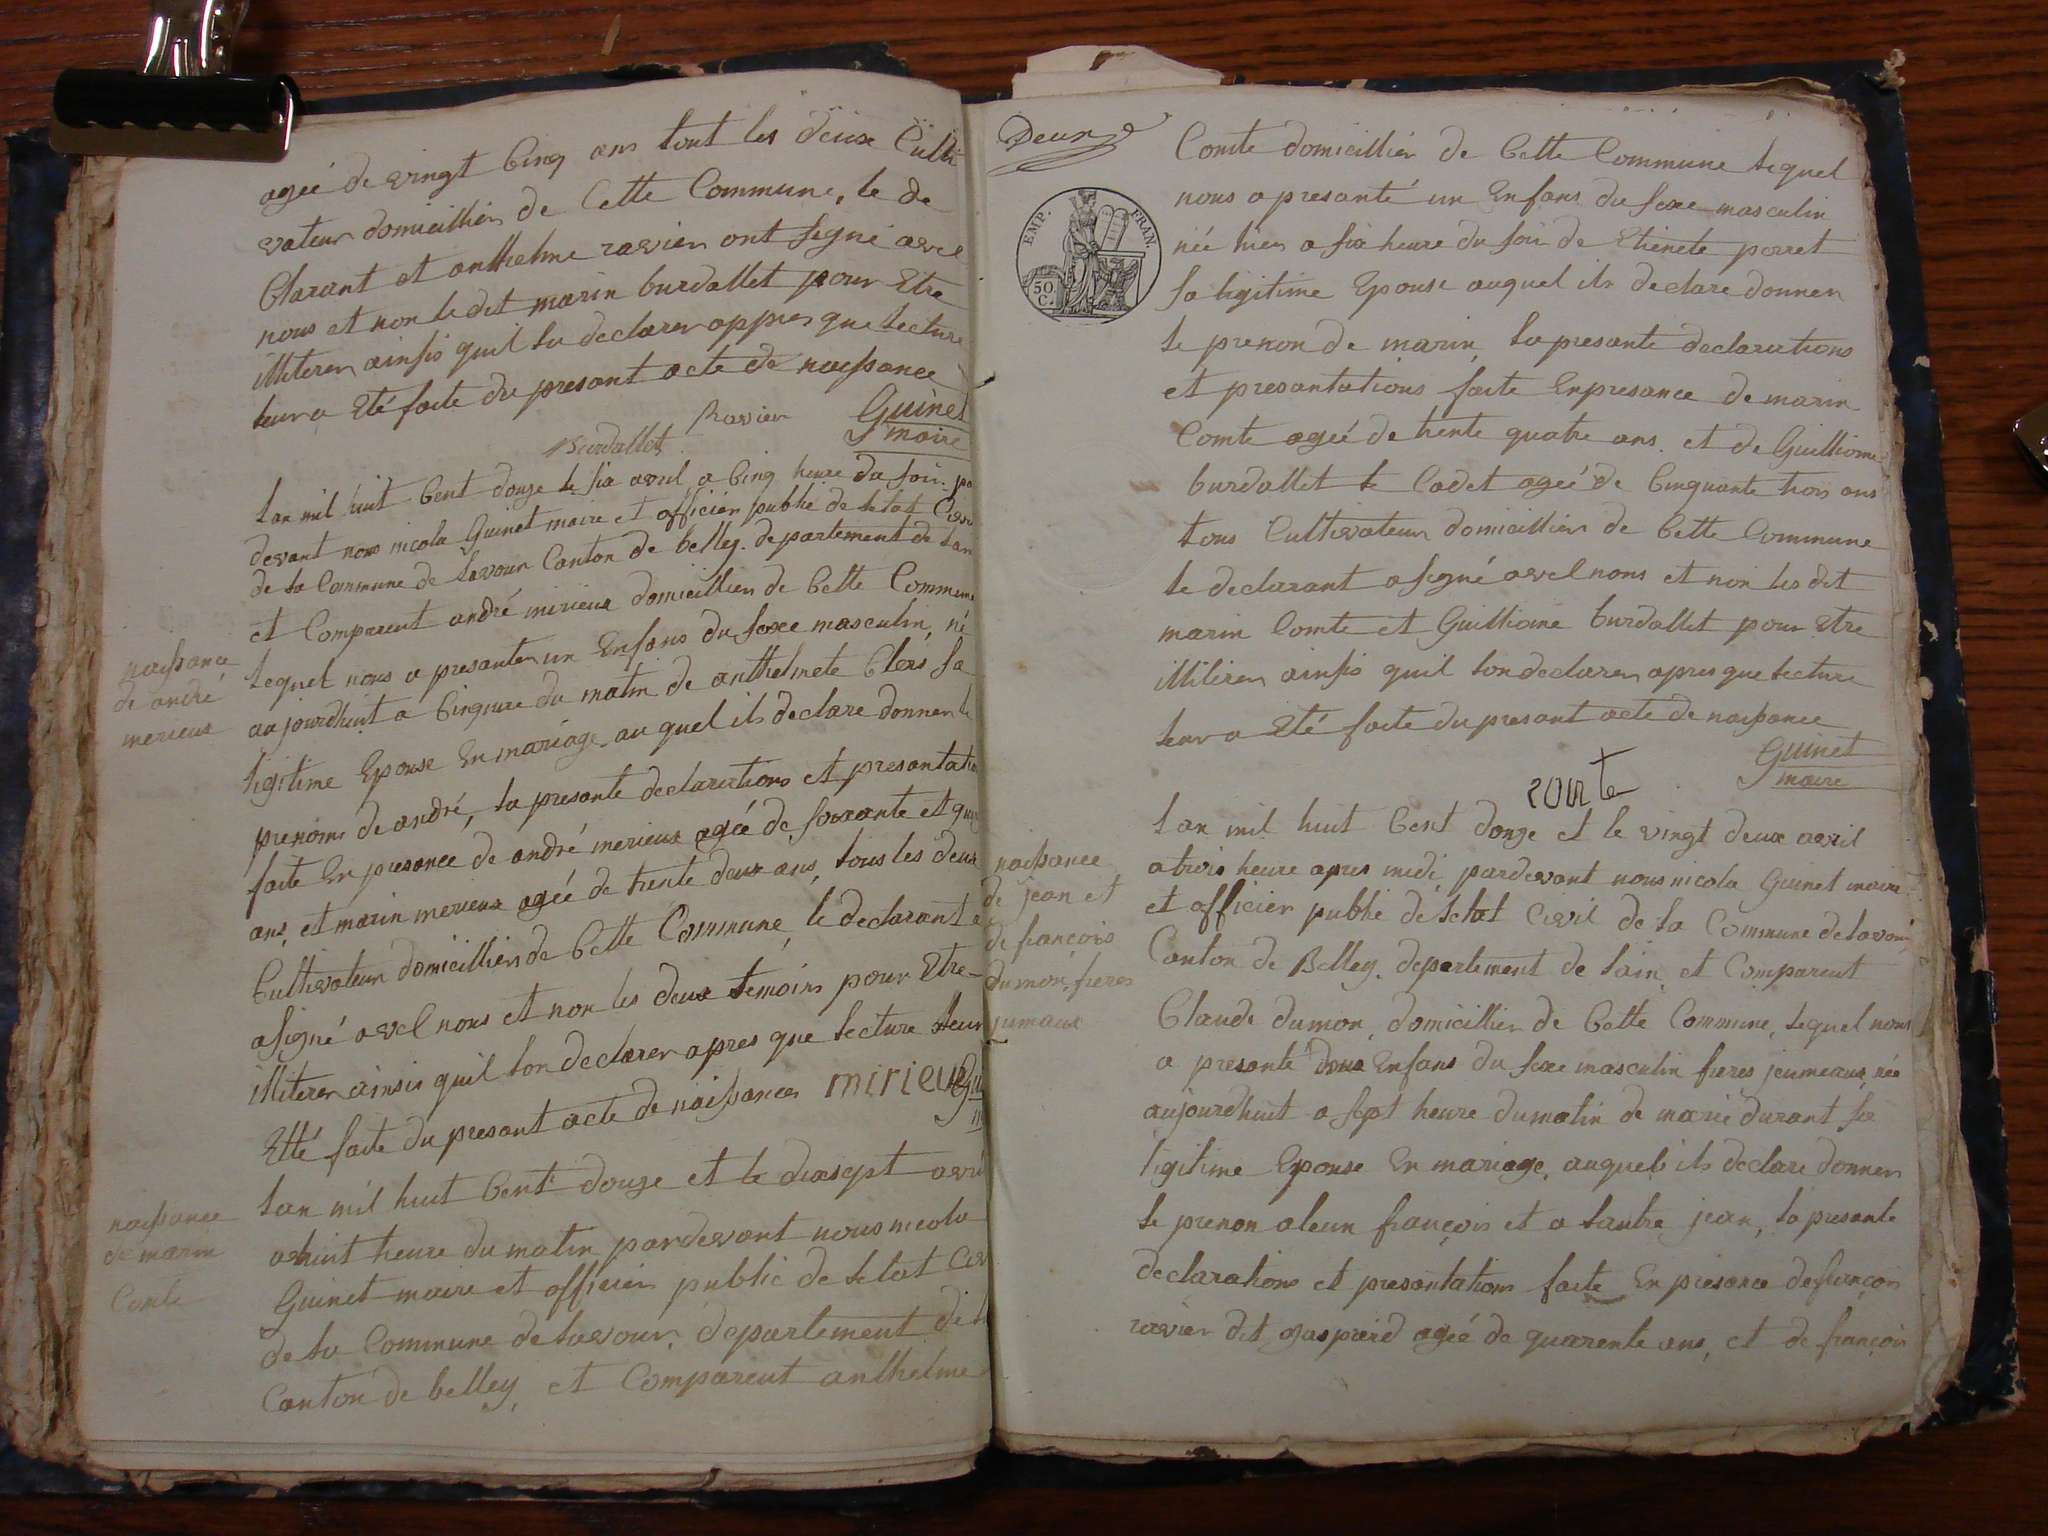 agée de vingt Cinq ans tout les deux Culti
vateur domicillier de Cette Commune, le de
Clarant et anthelme ravier ont signé avec
nous et non le dit marin burdallet pour Etre
illiterer ainsis quil la declarer appres que lecture
leur a Eté faite du presant acte de naissance
Burdallet Ravier Guinet
maire
lan mil huit Cent douze le six avril a Cinq heure du soir pa
devant nous nicola Guinet maire et officier public de letat Civil
de la Commune de lavour Canton de belley. departement de lain
et Comparent andré mirieux domicillier de Cette Commune
naissance
de andré
merieux
lequel nous a presanter un Enfans du sexe masculin, né
aujourdhuit a Cinqeure du matin de anthelmete Clers sa
legitime Epouse En mariage auquel ils declare donner le
prenom de andré, la presante declarations et presantatio
faite En presance de andré merieux agée de soixante et qu
ans, et marin merieux agée de trente deux ans, tous les deux
Cultivateur domicillier de Cette Commune, le declarant a
a signé avec nous et non les deux temoins pour Etre
illiterer ainsis quil lon declarer apres que lecture leur
Eté faite du presant acte de naissances mirieux Gui
naissance
de marin
Comte
lan mil huit Cent douze et le dixsept avril
a huit heure du matin pardevant nous nicola
Guinet maire et officier public de letat Civ
de la Commune de lavour, departement de l
Canton de belley, et Comparent anthelme
Deux
EMP. FRAN.
50. C.
Comte domicillier de Cette Commune lequel
nous a presanté un Enfans du sexe masculin
née hier a six heure du soir de Etienete porret
sa ligitime Epouse auquel ils declare donner
le prenon de marin, la presante declarations
et presantations faite En presance de marin
Comte agée de trente quatre ans. et de Guilliome
burdallet le Cadet agée de Cinquante trois ans
tous Cultivateur domicillier de Cette Commune
le declarant a signé avec nous et non les dit
marin Comte et Guilliome burdallet pour Etre
illiterer ainsis quil lon declarer apres que lecture
leur a Eté faite du presant acte de naissance
Guinet
maire
naissance
de jean et
de françois
dumon, freres
jumaux
lan mil huit Cent douze et le vingt deux avril
a trois heure apres midi pardevant nous nicola Guinet maire
et officier public de letat Civil de la Commune de lavour
Canton de Belley. departement de lain, et Comparent
Claude dumon, domicillier de Cette Commune, lequel nous
a presanté deux Enfans du sexe masculin freres jeumeaux, née
aujourdhuit a sept heure du matin de marie durant sa
ligitime Epouse En mariage, auquel ils declare donner
le prenon a leun françois et a lautre jean, la presante
declarations et presantations faite En presance de françois
ravier dit gaspard agée de quarente ans, et de françois